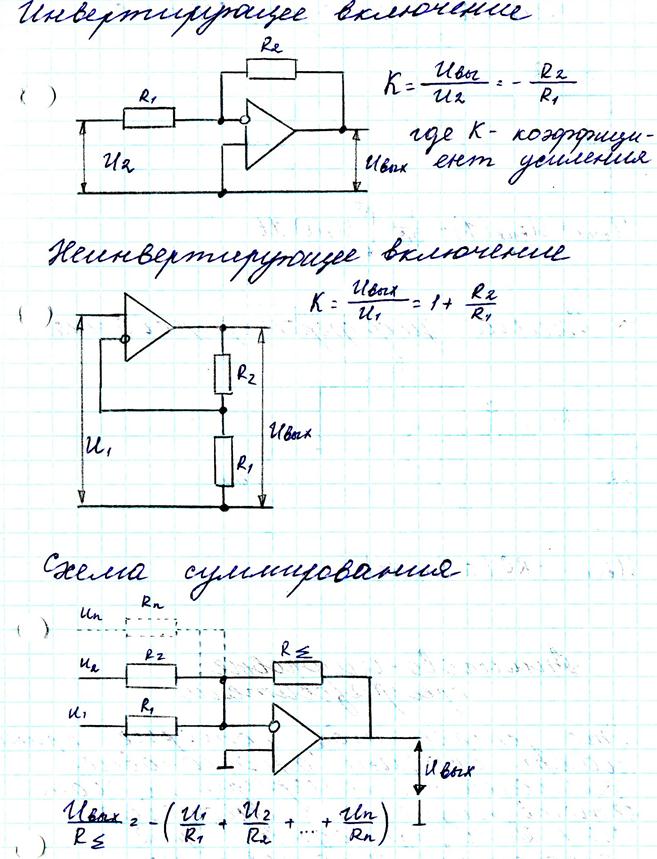 Инвертирующее включение
R2
K = Uвы/U2 = - R2/R1
( )
R1
где K - коэффици-
U2
Uвых
ент усиления
Неинвертирующее включение
( )
K = Uвых/U1 = 1 + R2/R1
R2
U1
Uвых
R1
Схема суммирования
Un
Rn
( )
U2
R2
R Σ
U1
R1
Uвых
Uвых/R Σ = - ( U1/R1 + U2/R2 + ... + Un/Rn )
( )